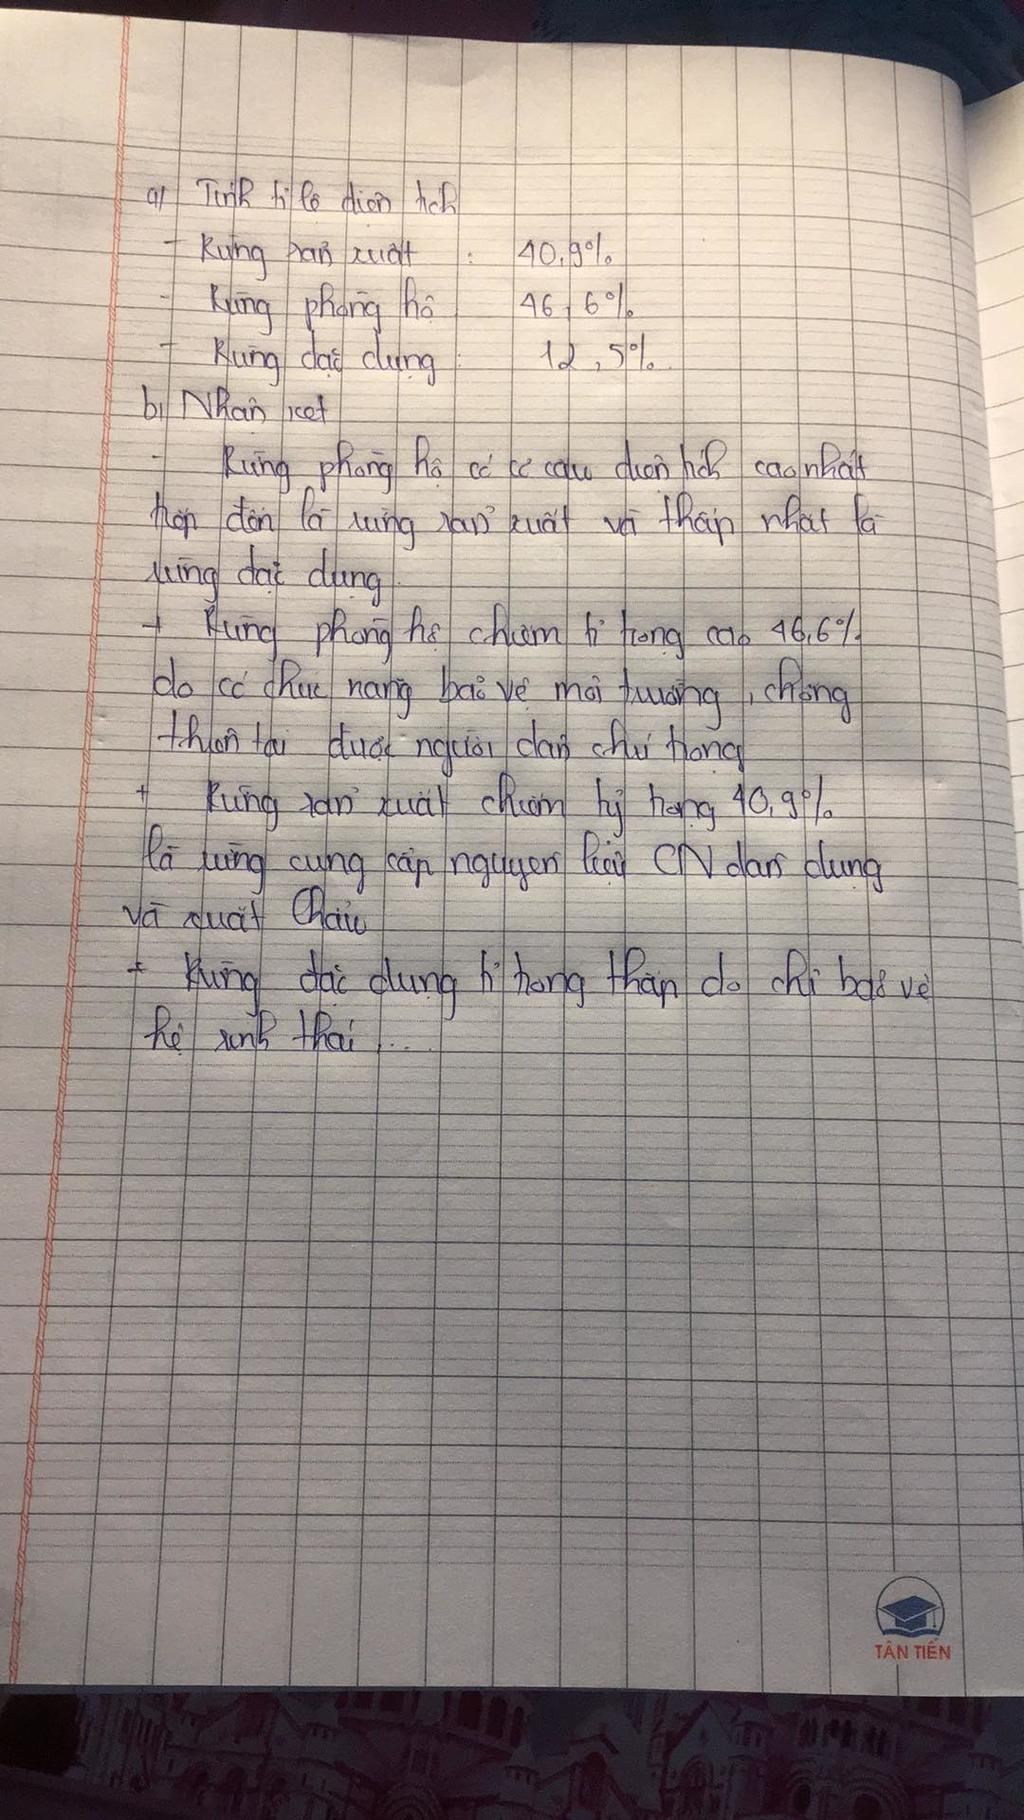 a) Tính tỉ lệ diện tích
- Rừng sản xuất : 40,9%
- Rừng phòng hộ 46,6%
- Rừng đặc dụng : 12,5%
b) Nhận xét
- Rừng phòng hộ có cơ cấu diện tích cao nhất
tiếp đến là rừng sản xuất và thấp nhất là
rừng đặc dụng
+ Rừng phòng hộ chiếm tỉ trọng cao 46,6%
do có chức năng bảo vệ môi trường, chống
thiên tai được người dân chú trọng
+ Rừng sản xuất chiếm tỷ trọng 40,9%
là rừng cung cấp nguyên liệu CN dân dụng
và xuất khẩu
+ Rừng đặc dụng tỉ trọng thấp do chỉ bảo vệ
hệ sinh thái,...
TÂN TIẾN